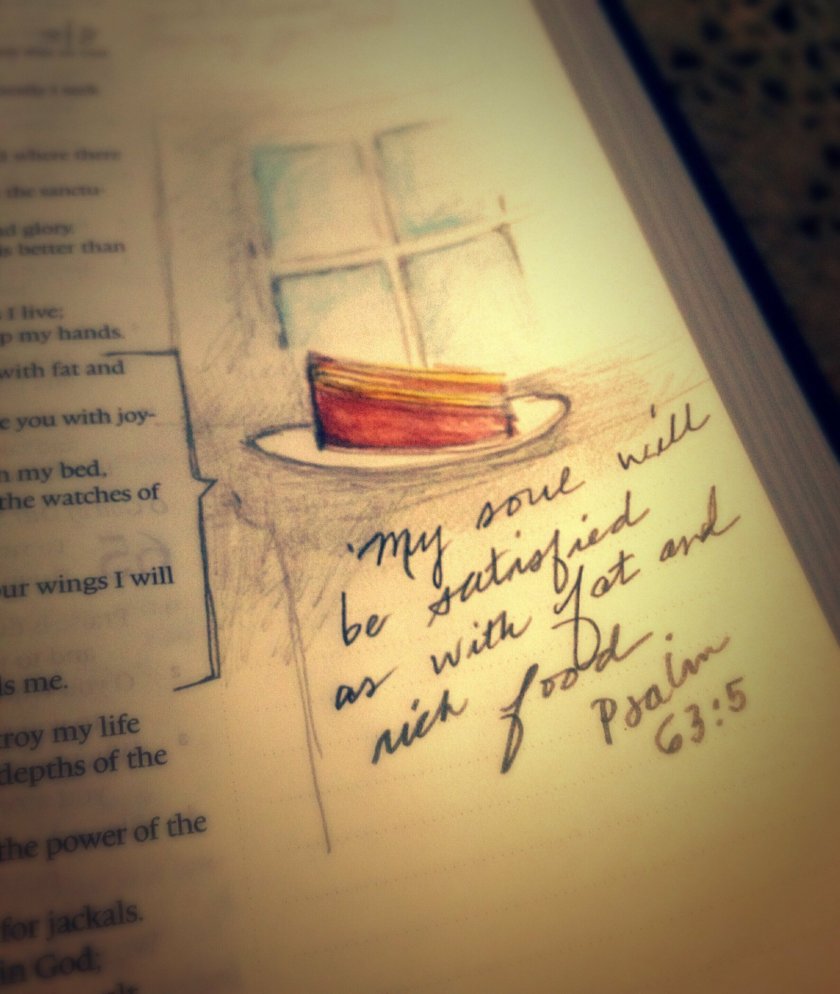 where there
the sanctu-
glory.
is better than
I live;
my hands.
with fat and
you with joy-
my bed,
the watches of
wings I will
me.
my life
depths of the
the power of the
for jackals.
in God;
"My soul will
be satisfied
as with fat and
rich food.
Psalm
63:5